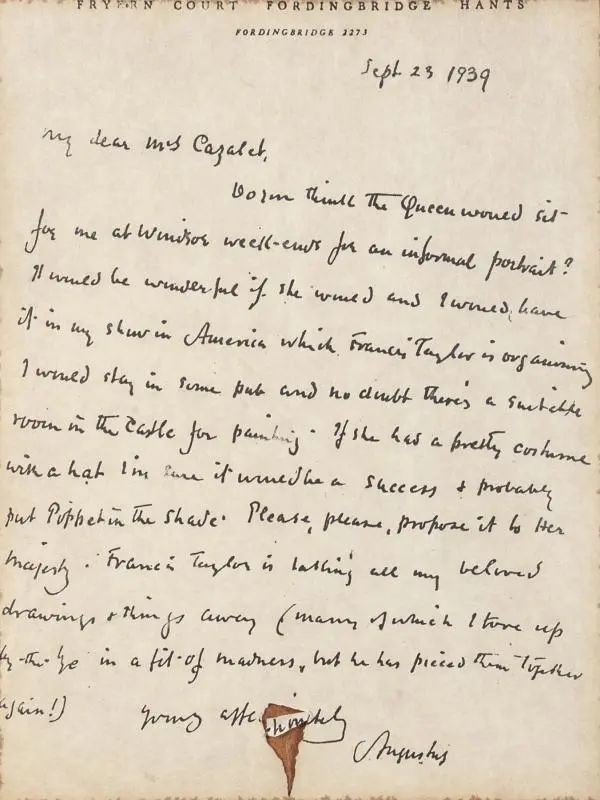 FRYERN COURT FORDINGBRIDGE HANTS
FORDINGBRIDGE 2273
Sept 23 1939
My dear Mrs Cazalet,
Do you think the Queen would sit
for me at Windsor week-ends for an informal portrait?
It would be wonderful if she would and I would have
it in my show in America which Francis Taylor is organising
I would stay in some pub and no doubt there's a suitable
room in the Castle for painting. If she had a pretty costume
with a hat I'm sure it would be a success & probably
put Poppet in the shade. Please, please, propose it to Her
Majesty. Francis Taylor is taking all my beloved
drawings & things away (many of which I tore up
by-the-bye in a fit of madness, but he has pieced them together
again!)
Yours affectionately
Augustus